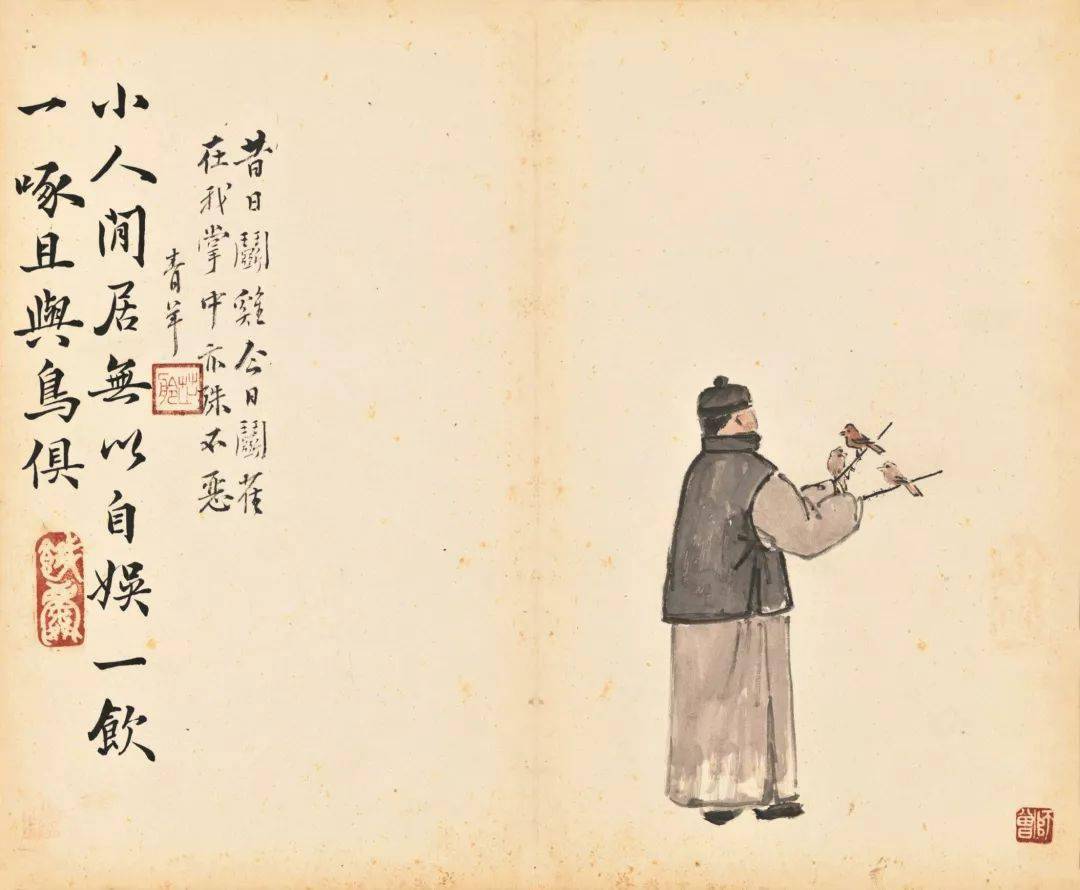 昔日鬬雞今日鬬雀
在我掌中亦殊不惡
青羊
小人閒居無以自娛一飲
一啄且與鳥俱
師曾